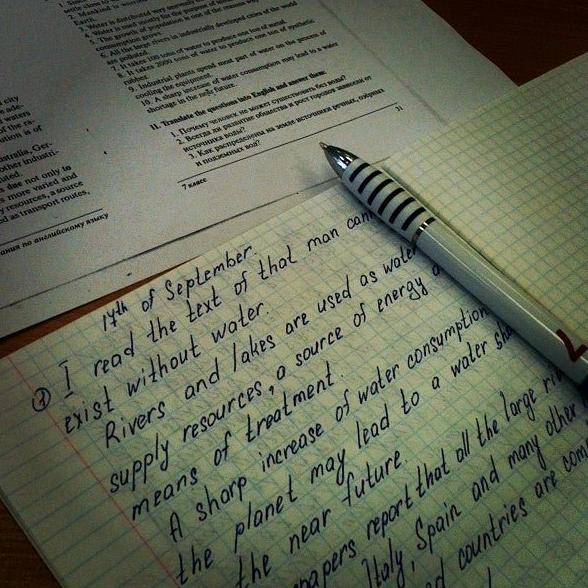 Earth.
4. Water is distributed very
5. The growth of population is one of the
consumption
6. All the large rivers in industrially developed cities of the world
are polluted.
7. It takes 100 tons of water to produce one ton of metal.
8. It takes 2000 tons of water to produce one ton of synthetic
rubber.
9. Industrial plants spend most part of water on the process of
cooling the equipment.
10. A sharp increase of water consumption may lead to a water
shortage in the near future.
II. Translate the questions into English and answer them:
1. Почему человек не может существовать без воды?
2. Всегда ли развитие общества и рост городов зависели от
источника воды?
3. Как распределены на земле источники речных, озёрных
и подземных вод?
31
7 классе
city
ade-
waters
of the
ution is
stralia, Ger-
other industri-
due not only to
more varied and
resources, a source
as transport routes,
по английскому языку
17th of September.
1 I read the text of that man can
exist without water.
Rivers and lakes are used as water
supply resources, a source of energy
means of treatment.
A sharp increase of water consumption
the planet may lead to a water
the near future.
papers report that all the large
Italy, Spain and many other
countries are